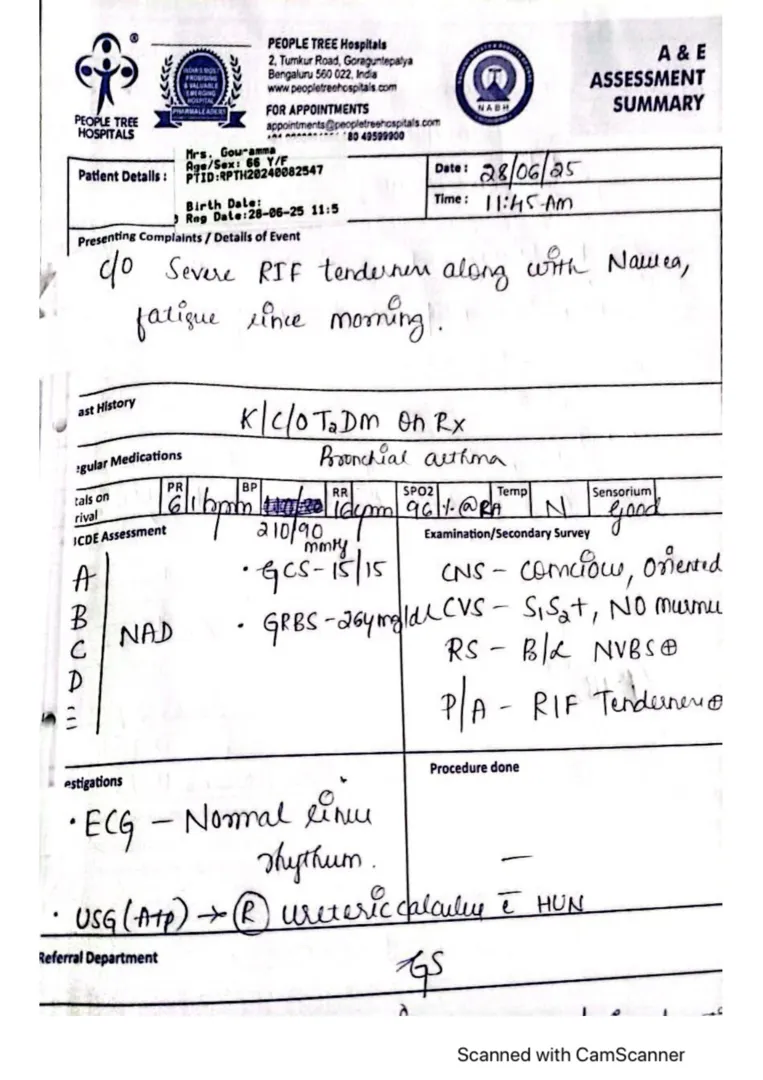 PEOPLE TREE
HOSPITALS
INDIA'S MOST
PROMISING
& VALUABLE
EMERGING
HOSPITAL
PHARMALEADERS
PEOPLE TREE Hospitals
2, Tumkur Road, Goraguntepalya
Bengaluru 560 022, India
www.peopletreehospitals.com
FOR APPOINTMENTS
appointments@peopletreehospitals.com
80 49599900
NABH
A & E
ASSESSMENT
SUMMARY
Patient Details :
Mrs. Gouramma
Age/Sex: 66 Y/F
PTID:RPTH20240082547
Birth Date:
Reg Date:28-06-25 11:5
Date : 28/06/25
Time : 11:45 Am
Presenting Complaints / Details of Event
c/o Severe RIF tenderness along with Nausea,
fatigue since morning.
ast History
K/C/O T2DM On Rx
egular Medications
Bronchial asthma
tals on
rival
PR 61bpm
BP 210/90 mmHg
RR 16cpm
SPO2 96%@RA
Temp N
Sensorium good
CDE Assessment
A
B
C
D
E
NAD
• GCS - 15/15
• GRBS - 264mg/dl
Examination/Secondary Survey
CNS - conscious, Oriented
CVS - S1S2+, NO murmu
RS - B/L NVBS⊕
P/A - RIF Tenderness⊕
estigations
• ECG - Normal sinus
rhythum.
• USG (A+p) → (R) ureteric calculus c̄ HUN
Procedure done
—
Referral Department
GS
Scanned with CamScanner